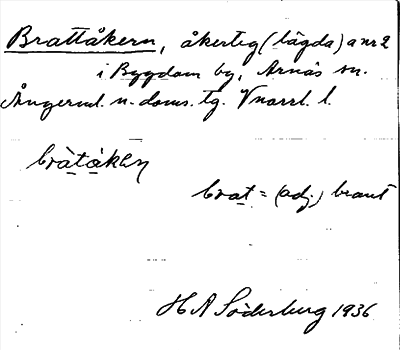 Brattåkern, åkerteg (lägda) a nr 2
i Bygdom by, Arnäs sn.
Ångerml. n. doms. tg. Vnorrl. l.
bràtåken
brat = (adj.) brant
H A Söderberg 1936